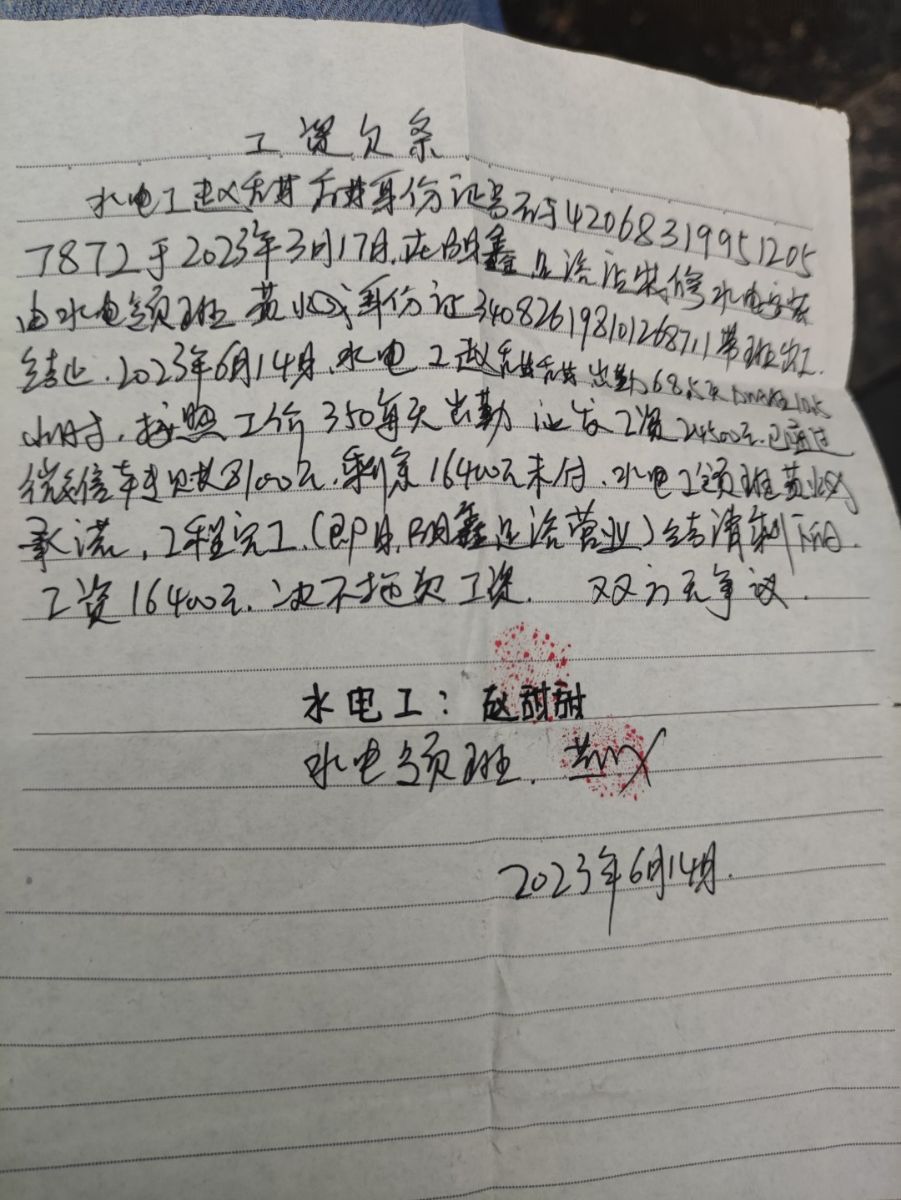 工资欠条
水电工赵甜甜身份证号码于42068319951205
7872于2023年3月17日.在明鑫足浴店装修水电安装
由水电领班 黄 身份证340826198101268711带班出工.
结止.2023年6月14日.水电工赵甜甜出勤68.5天 10.5
小时,按照工价350每天出勤 应发工资24500元.已通过
微信 8100元.剩余16400元未付.水电工领班黄
承诺,工程完工.(即日.明鑫足浴营业)结清剩下的.
工资16400元.决不拖欠工资. 双方无争议.
水电工:赵甜甜
水电领班.
2023年6月14日.